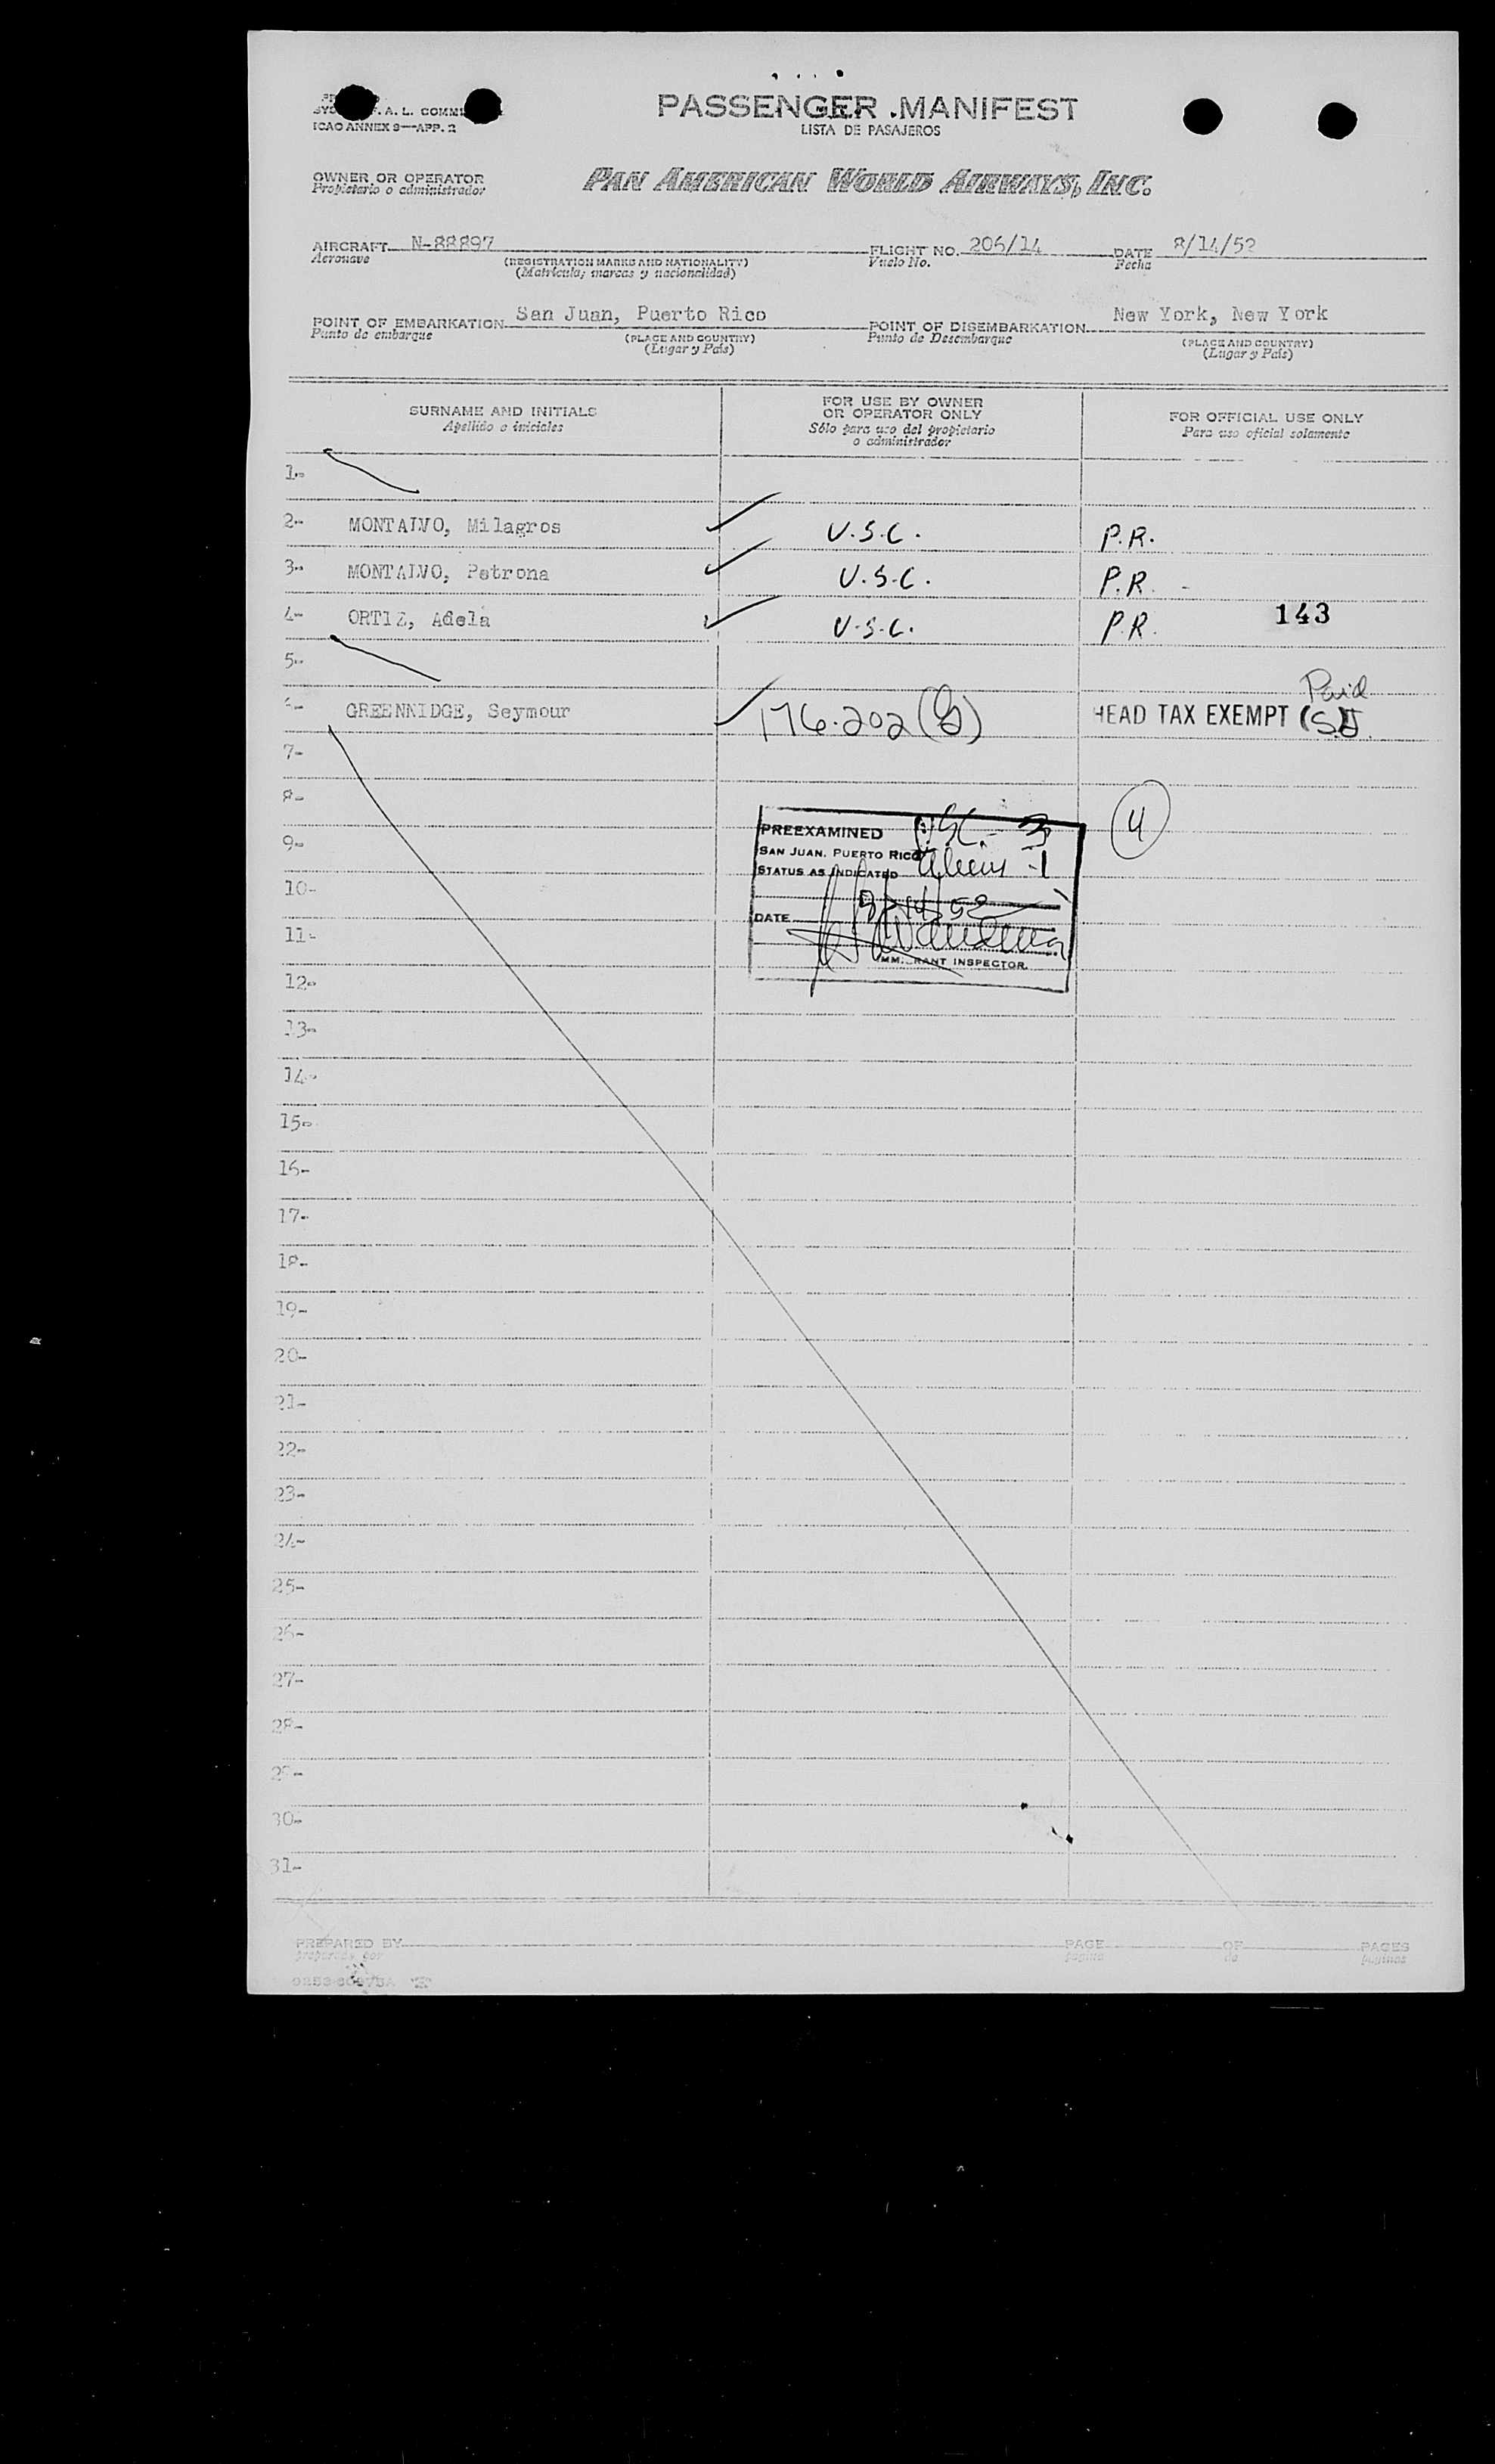 F. A. L. COMMI
ICAO ANNEX 9—APP. 2
PASSENGER MANIFEST
LISTA DE PASAJEROS
OWNER OR OPERATOR
Propietario o administrador
PAN AMERICAN WORLD AIRWAYS, INC.
AIRCRAFT N-88897 FLIGHT NO. 206/14 DATE 8/14/52
Aeronave (REGISTRATION MARKS AND NATIONALITY) Vuelo No. Fecha
(Matrícula, marcas y nacionalidad)
POINT OF EMBARKATION San Juan, Puerto Rico POINT OF DISEMBARKATION New York, New York
Punto de embarque (PLACE AND COUNTRY) Punto de Desembarque (PLACE AND COUNTRY)
(Lugar y País) (Lugar y País)
SURNAME AND INITIALS
Apellido e iniciales
FOR USE BY OWNER
OR OPERATOR ONLY
Sólo para uso del propietario
o administrador
FOR OFFICIAL USE ONLY
Para uso oficial solamente
1-
2- MONTALVO, Milagros U.S.C. P.R.
3- MONTALVO, Petrona U.S.C. P.R.
4- ORTIZ, Adela U.S.C. P.R. 143
5-
Paid
GREENNIDGE, Seymour 176.202 HEAD TAX EXEMPT (SJ)
7-
8- 4
PREEXAMINED USC - 3
SAN JUAN, PUERTO RICO Aliens - 1
STATUS AS INDICATED
DATE 8/14/52
IMMIGRANT INSPECTOR.
9-
10-
11-
12-
13-
14-
15-
16-
17-
18-
19-
20-
21-
22-
23-
24-
25-
26-
27-
28-
29-
30-
31-
PREPARED BY PAGE OF PAGES
preparado por página de páginas